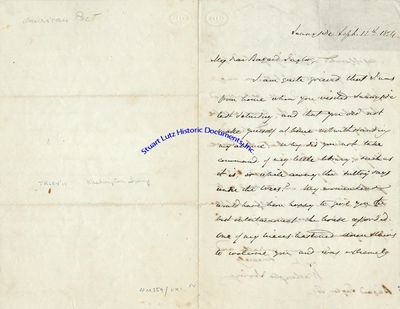 American Poet
Washington Irving
Stuart Lutz Historic Documents, Inc.
Sunnyside Sept. 12th 1854
My dear Bayard Taylor,
I am quite grieved that I was
from home when you visited Sunnyside
last Saturday, and that you did not
make yourself at home notwithstanding
my absence. Why did you not take
command of my little library, such as
it is, or while away the sultry days
under the trees? My
would have been happy to give you the
best entertainment the house afforded.
One of my nieces hastened down stairs
to welcome you, and was extremely